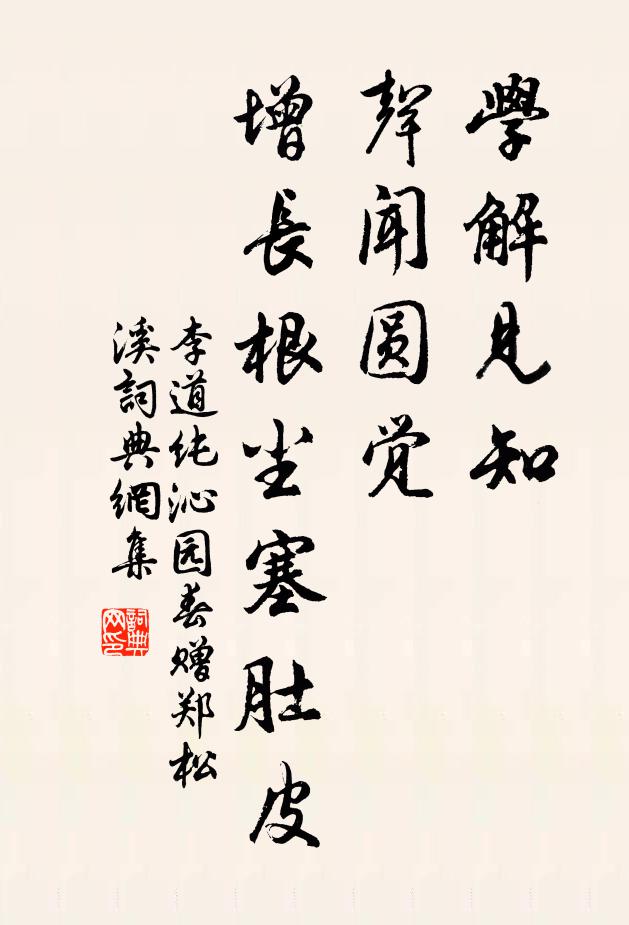 學解見知
聲聞圆覚
增長根尘塞肚皮
李道纯沁园春赠郑松
溪詞典網集
詞典网印